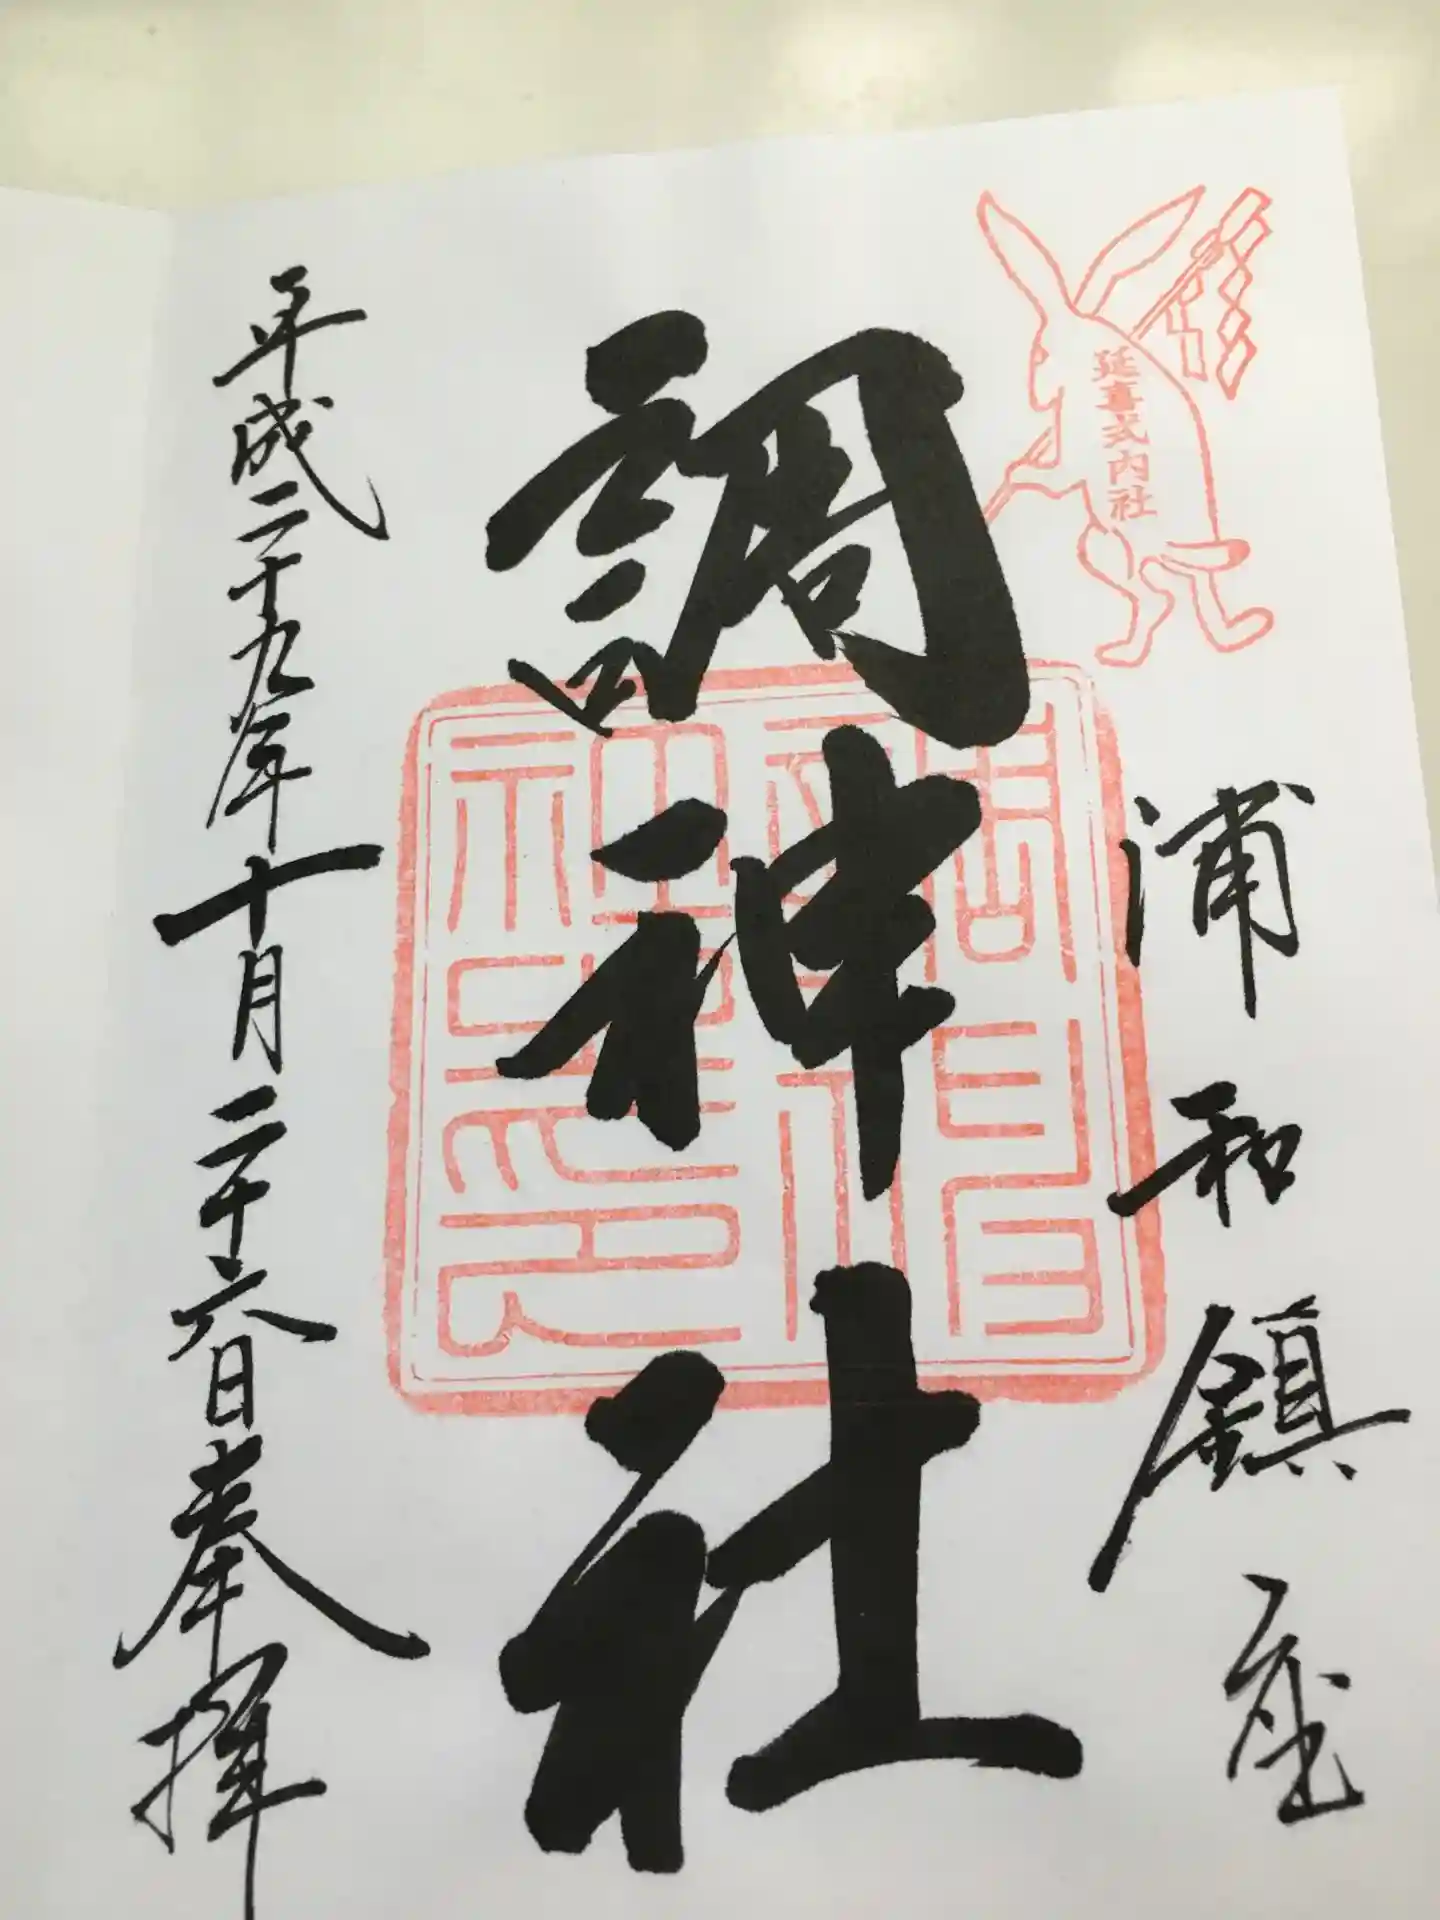 延喜式内社
浦和鎮座
調神社
平成二十九年十月二十六日奉拝